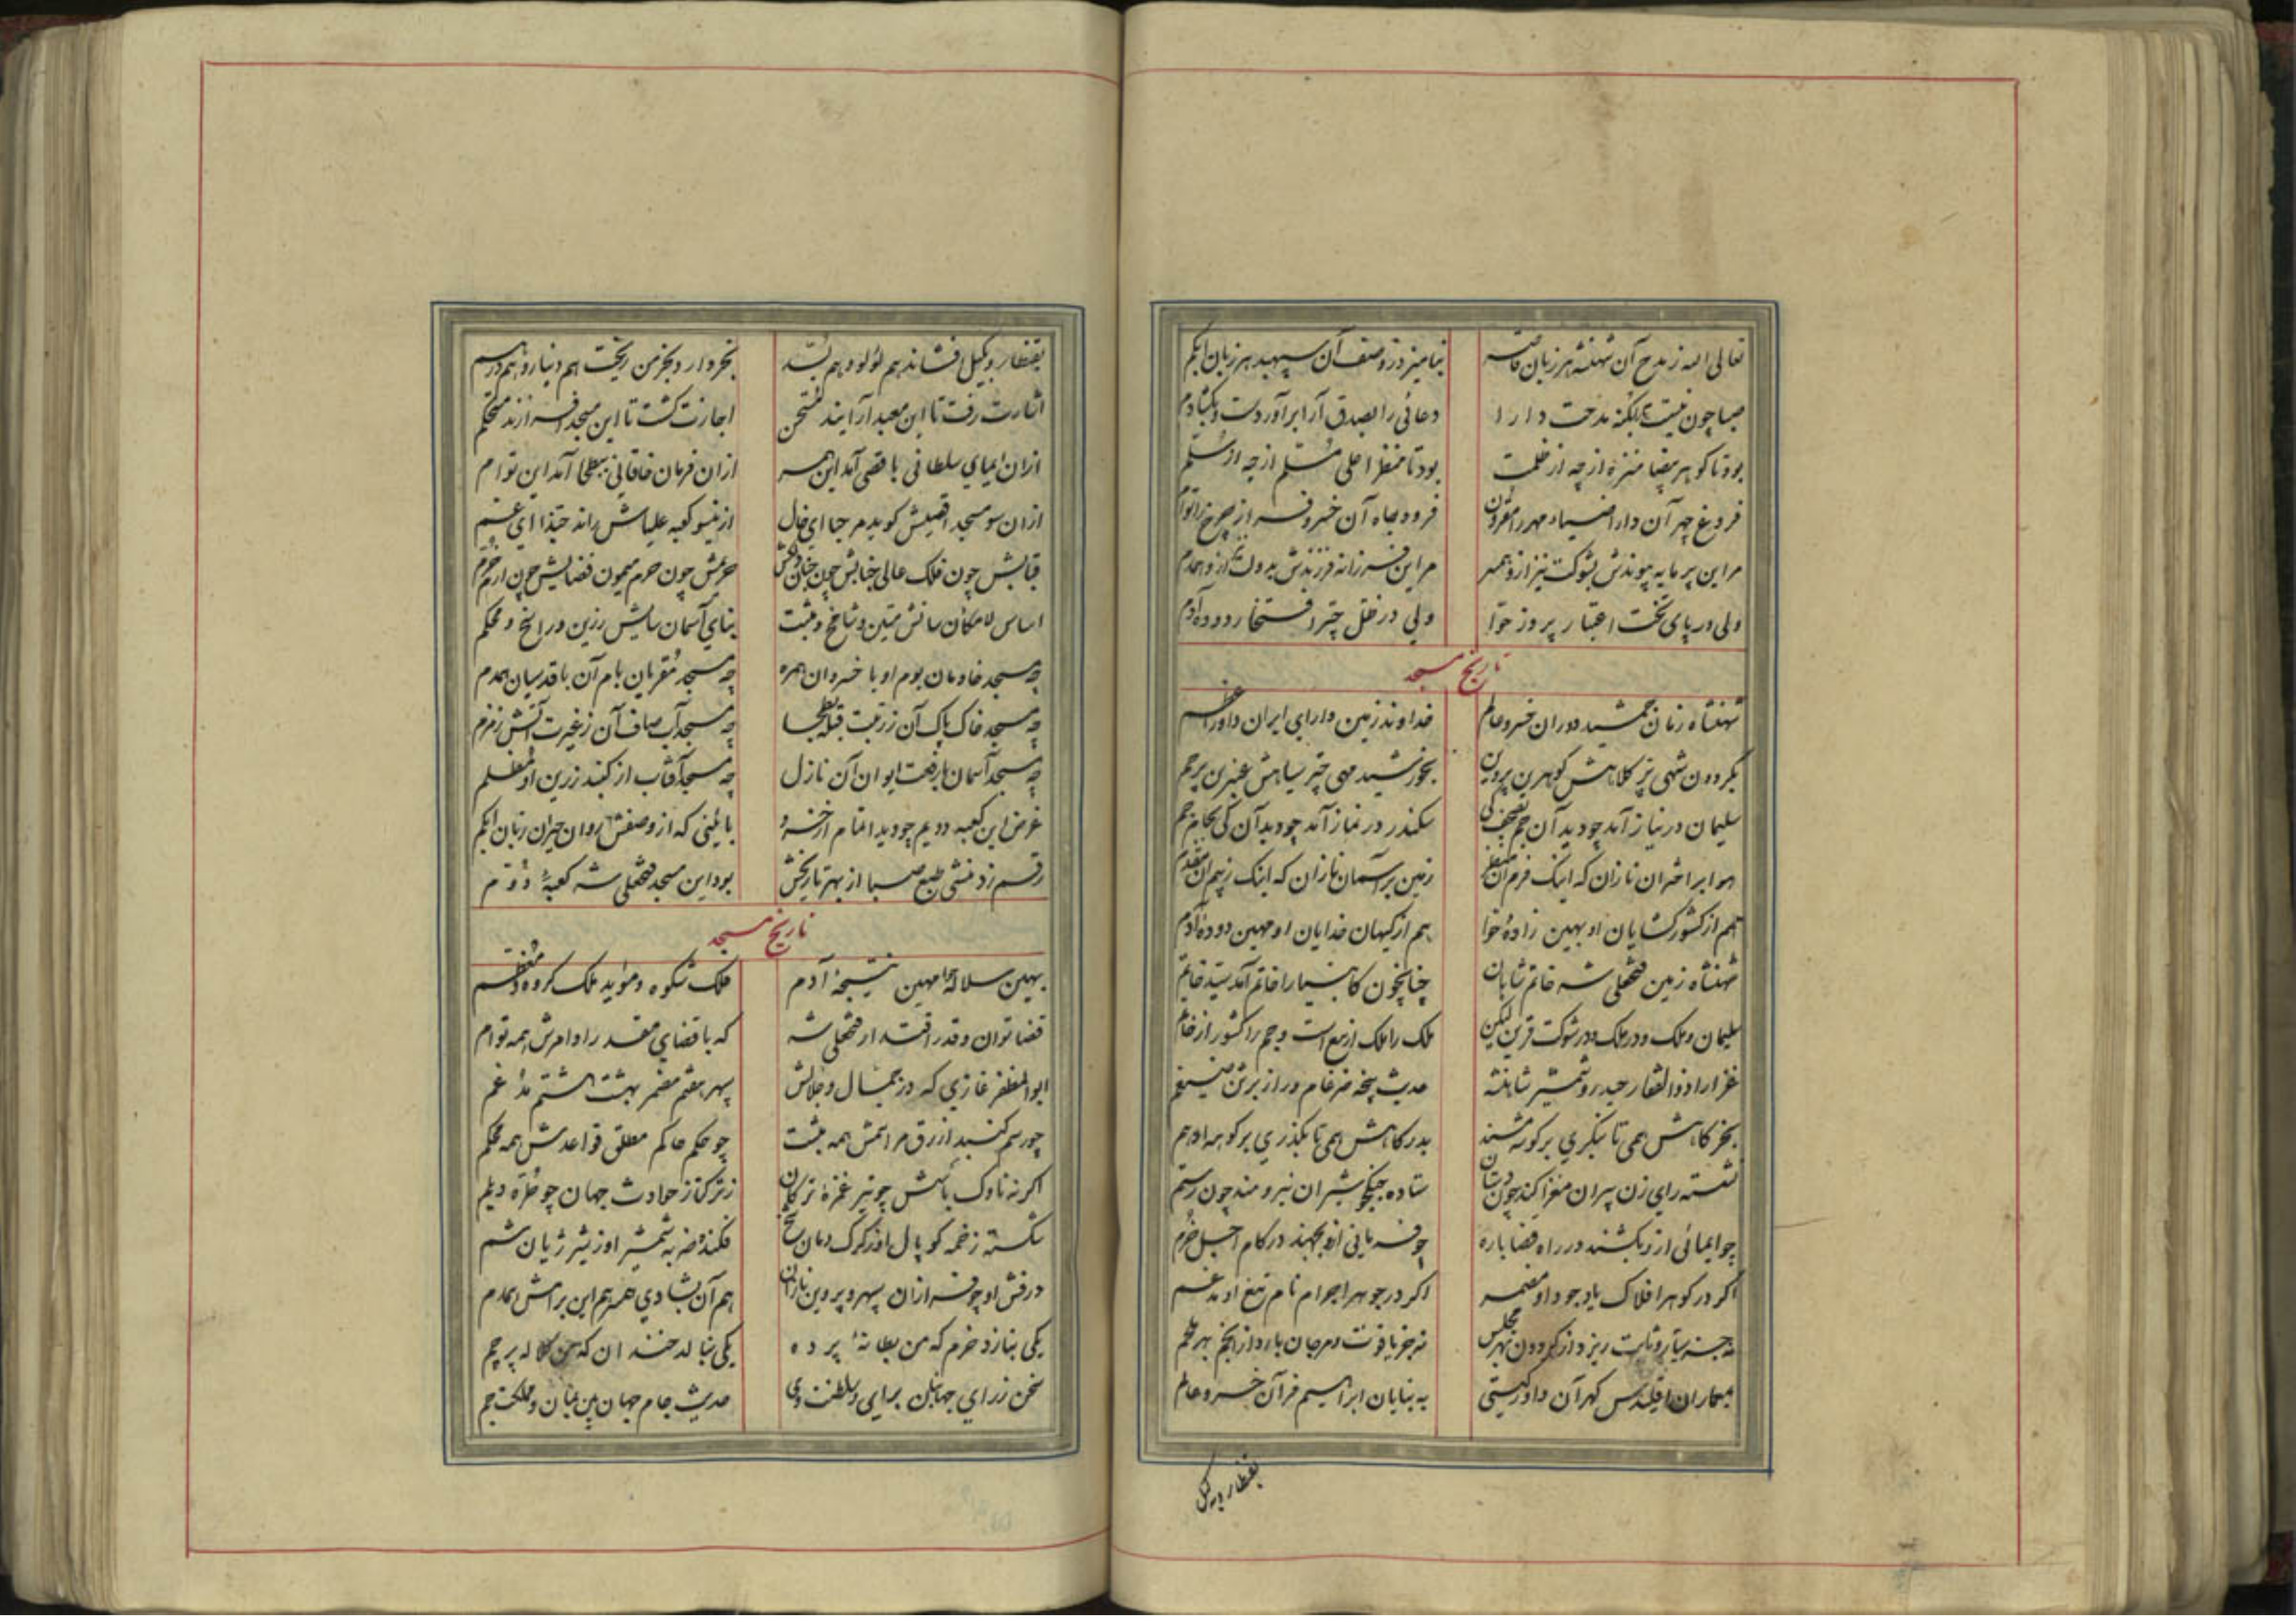 تعالی الله ز مدح آن شهنشه هر زبان قاصر نیامیزد ز وصف آن سپهبد هر زبان ابکم
صبا چون نیست بکنه مدحت دارا دعائی را بصدق آرا برآور دست و بکشا دم
بود تا کوهر بیضا منزه از چه از ظلمت بود تا منظر اعلی مسلم از چه از سلم
فروغ چهر آن دارا ضیاء مهر را مقرون فرود جاه آن خسرو فراز چرخ را توأم
مر این پر مایه پیوندش بشوکت نیز ازو همسر مر این فرزانه فرزندش بدولت ازو همدم
ولی در پای تخت اعتبار پرور حوا ولی در ظل چتر افتخار دوده آدم
تاریخ مسجد
شهنشاه زمان جمشید دوران خسرو عالم خداوند زمین دارای ایران داور اعظم
بکردون شهی تر کلاهش کوهرین پروین بخورشید مهی چتر سیاهش عنبرین پرچم
سلیمان در نیاز آمد چو دید آن جم سکندر در نماز آمد چو دید آن کی بجام جم
هوا بر اختران نازان که اینک فرم آن زمین بر آسمان نازان که اینک زیم آن مقدم
هم از کشور کشایان او بهین زاده حوا هم از کیهان خدایان او مهین دوده آدم
شهنشاه زمین فتحعلی شه خاتم شاهان چنانچون کانبیا را خاتم آمد سید خاتم
سلیمان و ملک و در ملک و در شوکت قرین لیکن ملک را ملک از تیغ است و جم را کشور از خاتم
غزا را ذوالفقار حیدر و شمشیر شاهنشه حدیث پنجه ضرغام دراز برش ضیغم
بخرکاهش همی تا بنکری بر کوشه مسند بدرکاهش همی تا بکذری بر کوهه ادهم
نشسته رای زن پیران مغز آکند چون دستان ستاده جنکجو شیران نیرومند چون رستم
چو ایمائی ازو بکشند در راه قضا باره چو فرمانی ازو بجهند در کام اجل خرم
اکر در کوهر افلاک باد جود او مضمر اکر در جوهر اجرام نام تیغ او مدغم
نه جز سیار و ثابت ریزد از کردون بهر مجلس نه جز یاقوت و مرجان بارد از انجم بهر طارم
بمعماران اقلیدس کهر آن داور کیتی به بنایان ابراهیم فر آن خسرو عالم
بقنطار و بکیل
بقنطار و بکیل افشاند هم لؤلؤ و هم بسد بخروار و بخرمن ریخت هم دینار و هم درهم
اشارت رفت تا این معبد آرایند مستحسن اجازت کشت تا این مسجد افرازند مستحکم
ازان ایمای سلطانی باقصی آمد این همسر ازان فرمان خاقانی ببطحا آمد این توأم
ازان سو مسجد اقصیش کوید مرحبا ای خال ازینسو کعبه علیاش راند حبذا ای عم
قبابش چون فلک عالی جنابش چون جنان دلکش حریمش چون حرم میمون فضایش چون ارم خرم
اساس لامکان سانش متین و شامخ و مثبت بنای آسمان سایش رزین و راسخ و محکم
چه مسجد خادمان بوم او با خسروان همره چه مسجد مقریان بام آن با قدسیان همدم
چه مسجد خاک پاک آن ز رتبت قبله بطحا چه مسجد آب صاف آن ز غیرت آتش زمزم
چه مسجد آسمان با رفعت ایوان آن نازل چه مسجد آفتاب از کنبد زرین او مظلم
غرض این کعبه دویم چو دید اتمام از خسرو بائینی که از وصفش روان حیران زبان ابکم
رقم زد منشی طبع صبا از بهر تاریخش بود این مسجد فتحعلی شه کعبهٔ دوم
تاریخ مسجد
بهین سلاله حوا مهین نتیجهٔ آدم فلک شکوه و مؤید ملک کروه و معظم
قضا توان و قدر اقتدار فتحعلی شه که با قضای مقدر اوامرش همه توأم
ابوالمظفر غازی که در جمال و جلالش سپهر هفتم مضمر بهشت هشتم مدغم
چو رسم کنبد ازرق مراسمش همه مثبت چو حکم حاکم مطلق قواعدش همه محکم
اکر نه ناوک باسش چو تیر غمزهٔ ترکان ز ترکتاز حوادث جهان چو طره دیلم
شکسته زخمه کوپال او ز کرک دمان یخ فکنده ضربه شمشیر او ز شیر ژیان شم
درفش او چو فرازان سپهر و پروین نازان هم آن بشادی همسر هم این برامش همدم
یکی بنازد خرم که من بطانهٔ پرده یکی ببالد خندان که من کلاله پرچم
سخن ز رای جهانبان برای و سلطنت وی حدیث جام جهان بین بیان و مملکت جم